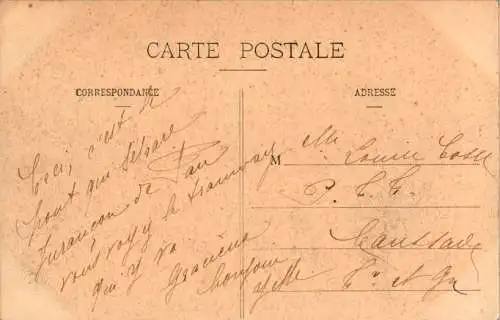 CARTE POSTALE
CORRESPONDANCE
Ceci, c'est le
pont qui sépare
Jurançon de Pau
vous voyez le tramway
qui y va
Gracieux
bonjour
ADRESSE
M elle Louise
P. T. T.
Caussade
Tn et Gne